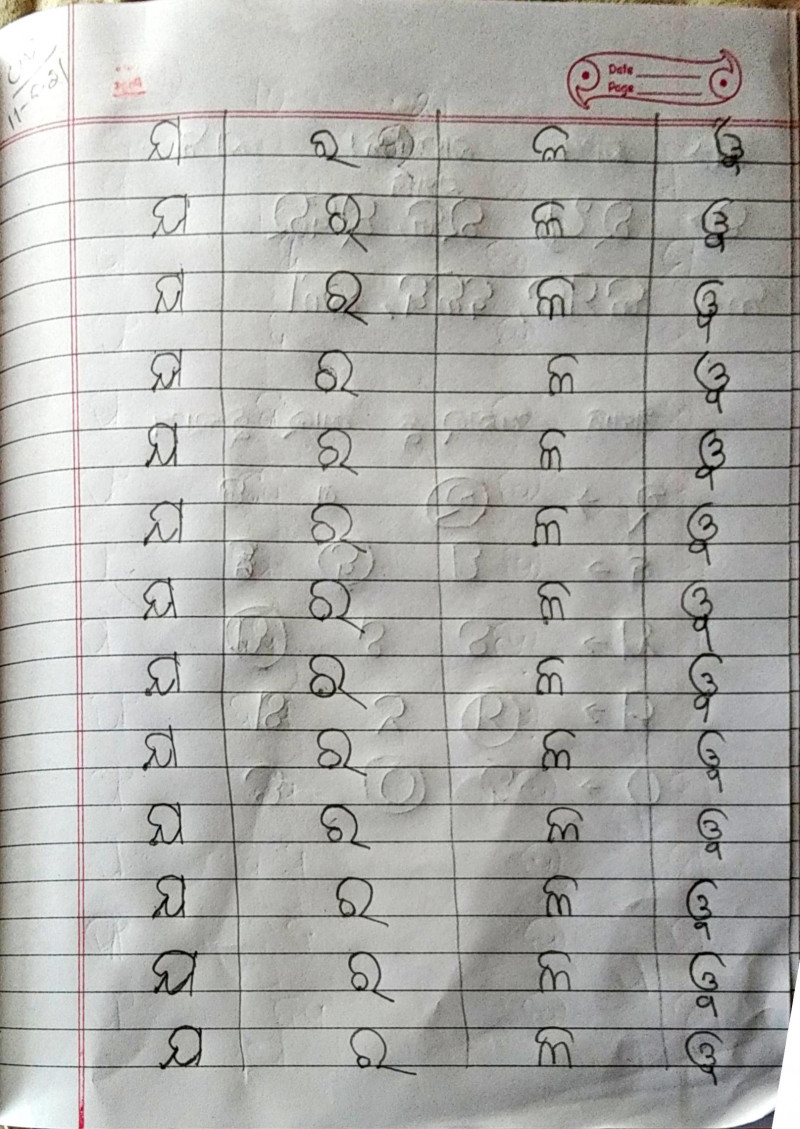 Date
Page
ଯ ର ଳ ୱ
ଯ ର ଳ ୱ
ଯ ର ଳ ୱ
ଯ ର ଳ ୱ
ଯ ର ଳ ୱ
ଯ ର ଳ ୱ
ଯ ର ଳ ୱ
ଯ ର ଳ ୱ
ଯ ର ଳ ୱ
ଯ ର ଳ ୱ
ଯ ର ଳ ୱ
ଯ ର ଳ ୱ
ଯ ର ଳ ୱ